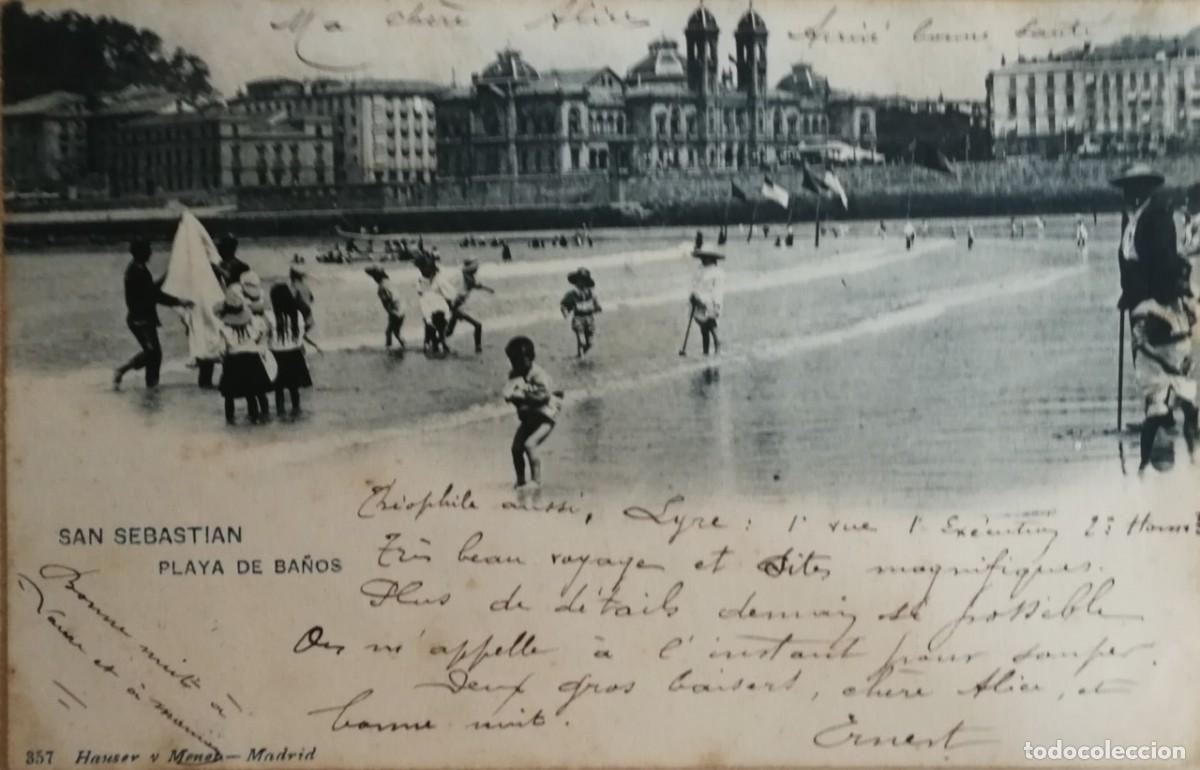 Ma chère Alice Arrivé bonne santé
Théophile aussi, Lyre : 1° vue 1° Exécution 2°
Très beau voyage et Sites magnifiques.
Plus de détails demain si possible
On m'appelle à l'instant pour souper.
Deux gros baisers, chère Alice, et
bonne nuit.
Ernest
SAN SEBASTIAN
PLAYA DE BAÑOS
Bonne nuit à
et à maman
357 Hauser y Menet.—Madrid
todocoleccion